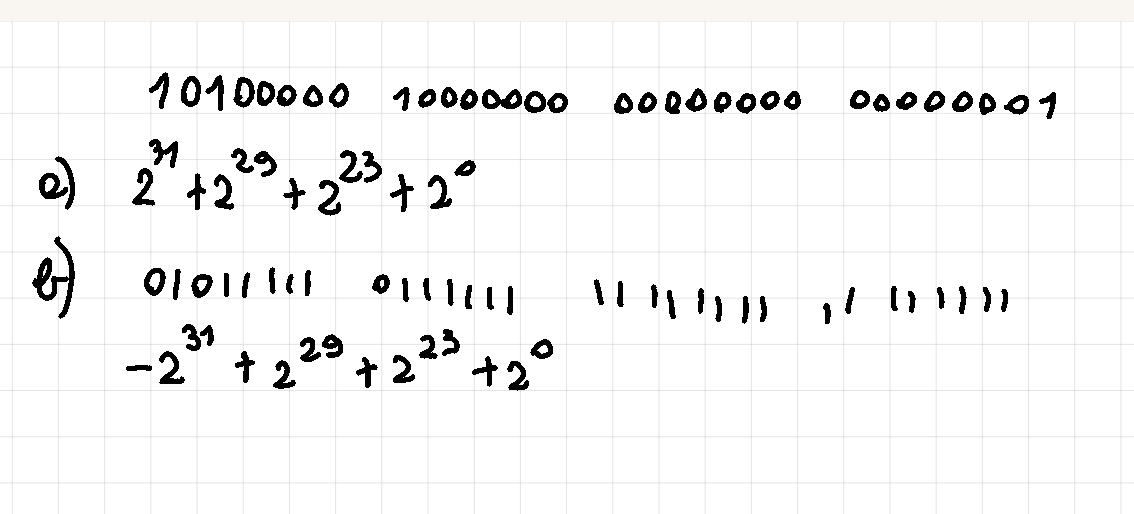 10100000 10000000 00000000 00000001
a) 2^31 + 2^29 + 2^23 + 2^0
b) 01011111 01111111 11111111 11111111
-2^31 + 2^29 + 2^23 + 2^0